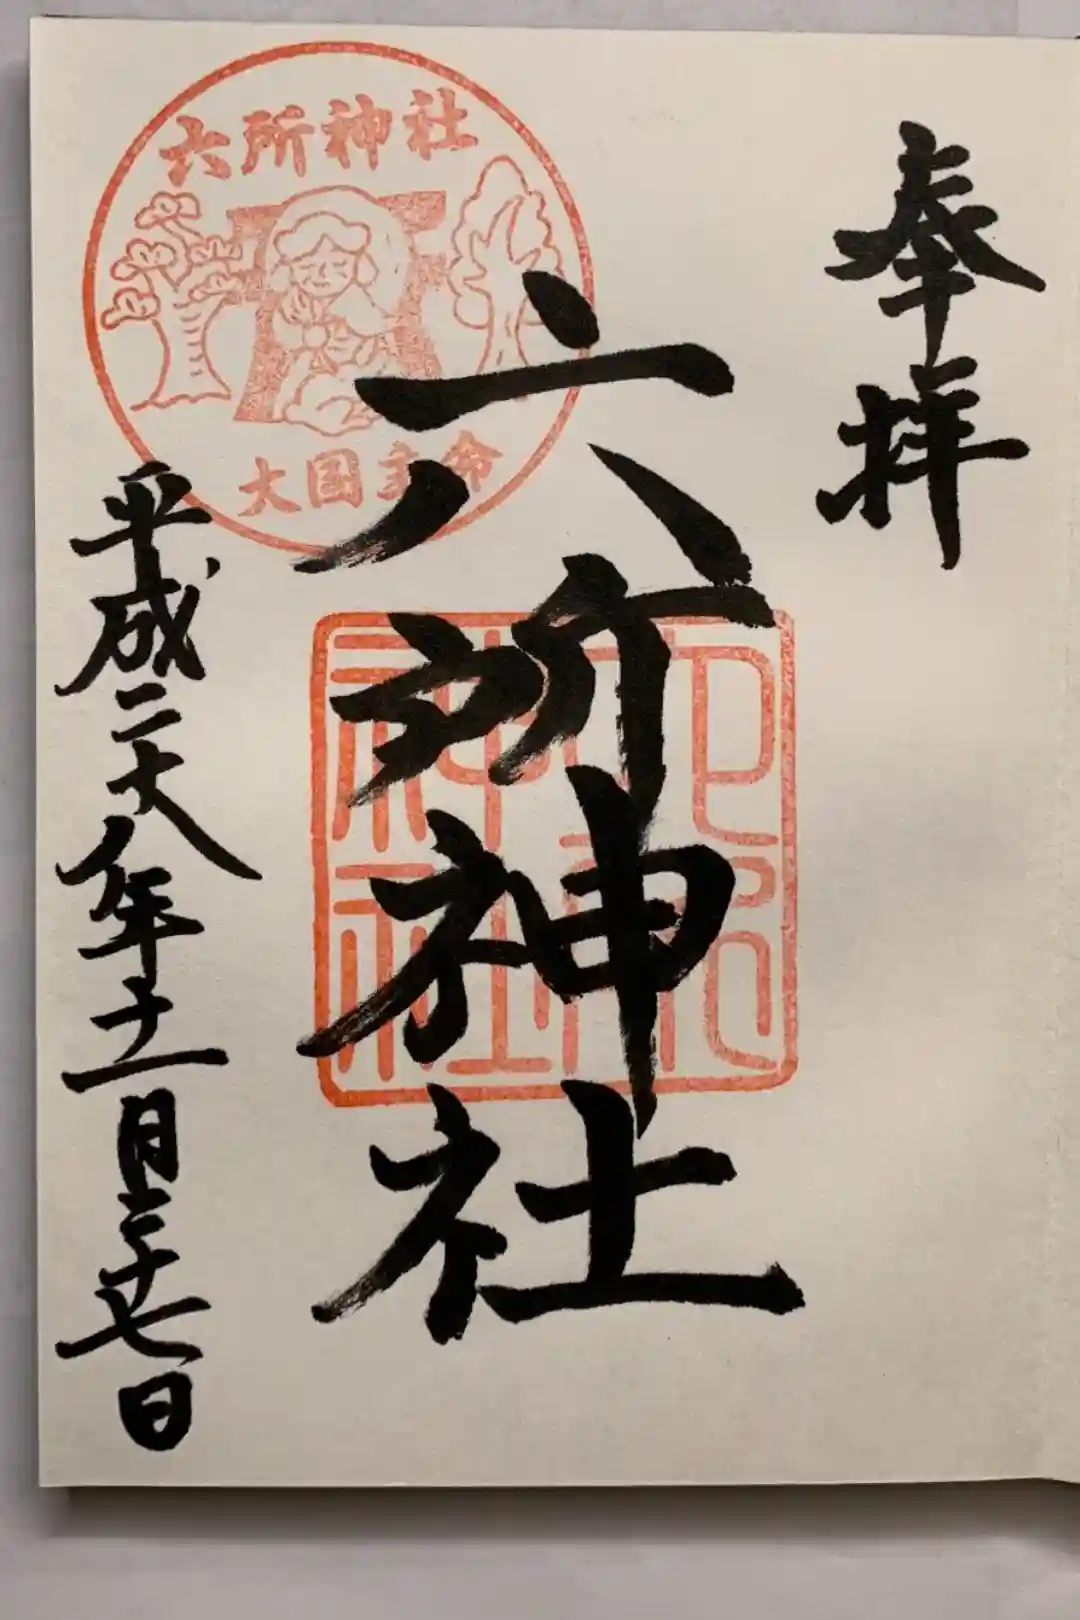 奉拝
六所神社
平成二十八年十一月二十七日
六所神社
大国主命
六所
神社